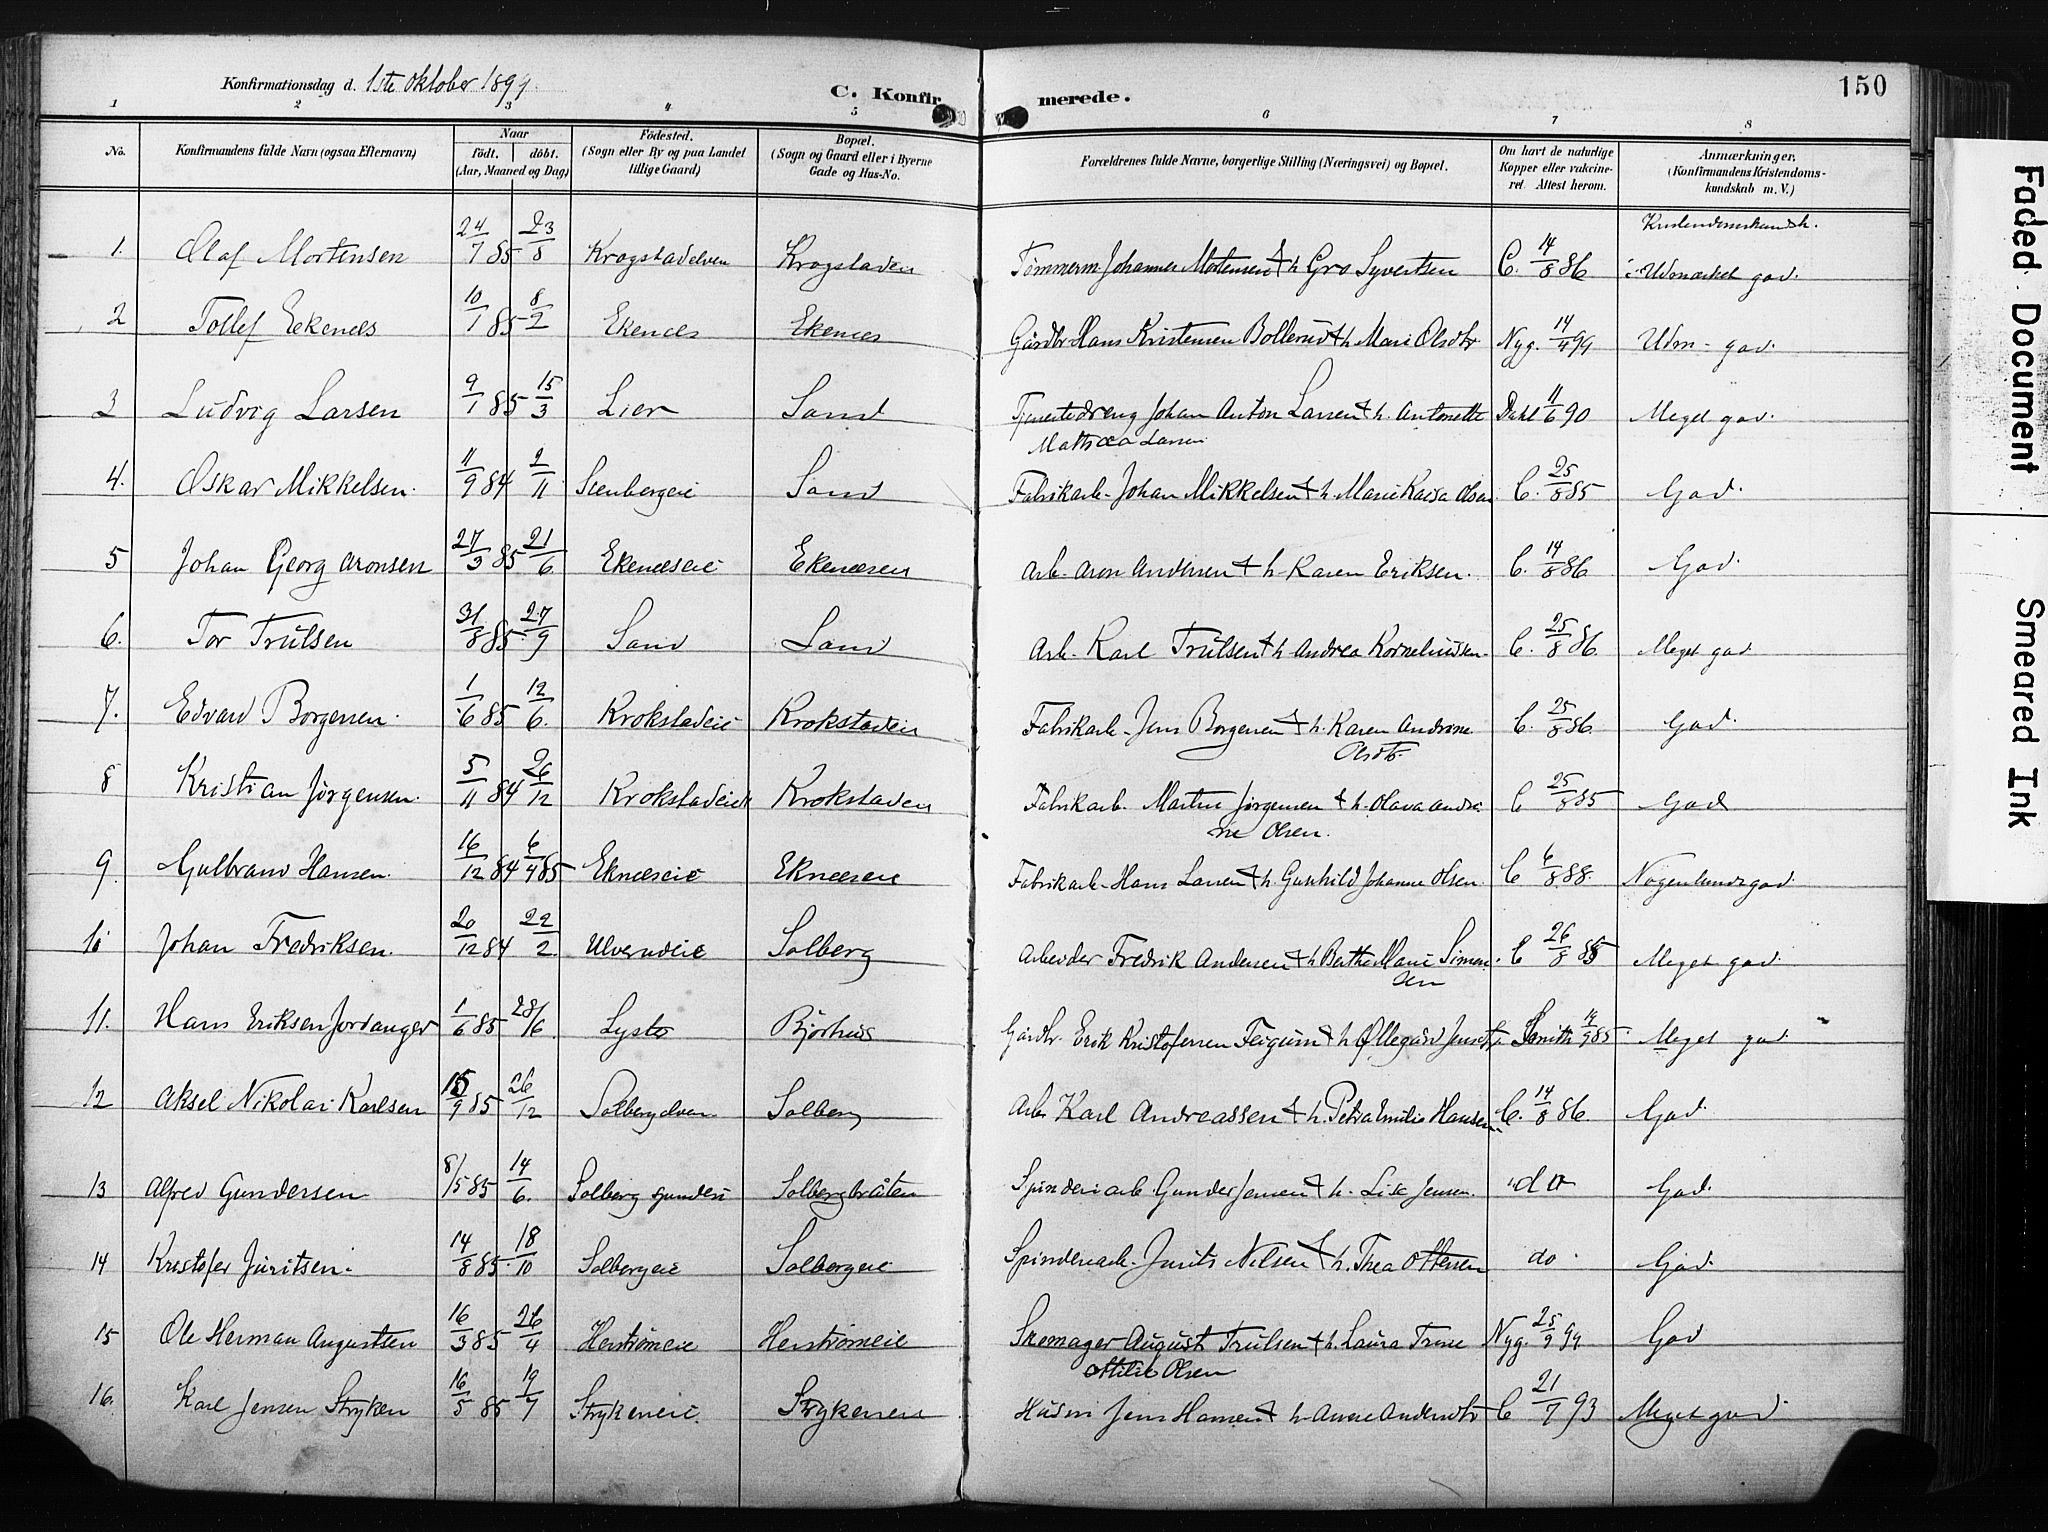 Konfirmationsdag d. 1ste Oktober 1899.
C. Konfirmerede.
150
1 2 3 4 5 6 7 8
No.
Konfirmandens fulde Navn (ogsaa Efternavn)
Naar
født. døbt.
(Aar, Maaned og Dag)
Fødested.
(Sogn eller By og paa Landet
tillige Gaard)
Bopæl.
(Sogn og Gaard eller i Byerne
Gade og Hus-No.
Forældrenes fulde Navne, borgerlige Stilling (Næringsvei) og Bopæl.
Om havt de naturlige
Kopper eller vakcine-
ret. Attest herom.
Anmærkninger.
(Konfirmandens Kristendoms-
kundskab m. V.)
1. Olaf Mortensen 24/7 85 23/8 Krogstadelven Krogstadeie Tømmerm. Johannes Mortensen & h. Gro Syvertsen C. 14/8 86 Udmærket god.
2 Tollef Ekenæs 10/1 85 8/2 Ekenæs Ekenæs Gårdbr. Hans Kristensen Bollerud & h. Mari Olsdtr Nyg. 14/4 99 Udm. god.
3 Ludvig Larsen 9/1 85 15/3 Lier Sand Tjenestedreng Johan Anton Larsen & h. Antonette Dahl 11/6 90 Meget god.
Larsen
4. Oskar Mikkelsen. 11/9 84 2/11 Stenbergeie Sand Fabrikarb. Johan Mikkelsen & h. Marie Kaisa Olsen C. 25/8 85 God.
5 Johan Georg Aronsen 27/3 85 21/6 Ekenæseie Ekenæseie Arb. Aron Andersen & h. Karen Eriksen. C. 14/8 86 God.
6. Tor Trulsen 31/8 85 27/9 Sand Sand Arb. Karl Trulsen & h. Andrea Korneliussen C. 25/8 86 Meget god
7. Edvard Borgersen. 1/6 85 12/6. Krokstadeie Krokstadeie Fabrikarb. Jens Borgersen & h. Karen Andrine C. 25/8 86 God.
Olsdtr.
8 Kristian Jørgensen. 5/11 84 26/12 Krokstadeie Krokstadeie Fabrikarb. Martin Jørgensen & h. Olava Andri- C 25/8 85 God
ne Olsen.
9. Gulbrand Hansen. 16/12 84 6/4 85 Eknæseie Eknæseie Fabrikarb. Hans Larsen & h. Gunhild Johanne Olsen C 6/8 88. Nogenlunde god.
10 Johan Fredriksen. 20/12 84 22/2 Ulverudeie Solberg Arbeider Fredrik Andersen & h. Berthe Marie Simon- C 26/8 85 Meget god.
sen
11. Hans Eriksen Jordanger 1/6 85 28/6 Lyster Bjørhus Gårdbr. Erik Kristofersen Feigum & h. Øllegård Jensdtr Smith 14/9 85 Meget god.
12 Aksel Nikolai Karlsen 15/9 85 26/12 Solbergelven Solberg Arb. Karl Andreassen & h. Petra Emilie Hansen C. 14/8 86. God.
13 Alfred Gundersen 8/5 85 14/6. Solberg spinderi Solbergbråten Spinderiarb. Gunder Jensen & h. Lise Jensen. do God.
14 Kristofer Juritsen. 14/8 85 18/10 Solbergeie Solbergeie Spinderiarb. Jurits Nilsen & h. Thea Ottersen do. God.
15 Ole Herman Augustsen 16/3 85 26/4 Herstrømeie Herstrømeie Skomager August Trulsen & h. Laura Trine Nyg. 25/9 99 God
Ottilie Olsen
16. Karl Jensen Stryken 16/5 85 19/7 Strykeneie. Strykeneie Husm. Jens Hansen & h. Anne Andersdtr C 21/7 93 Meget god
Faded Document
Smeared Ink